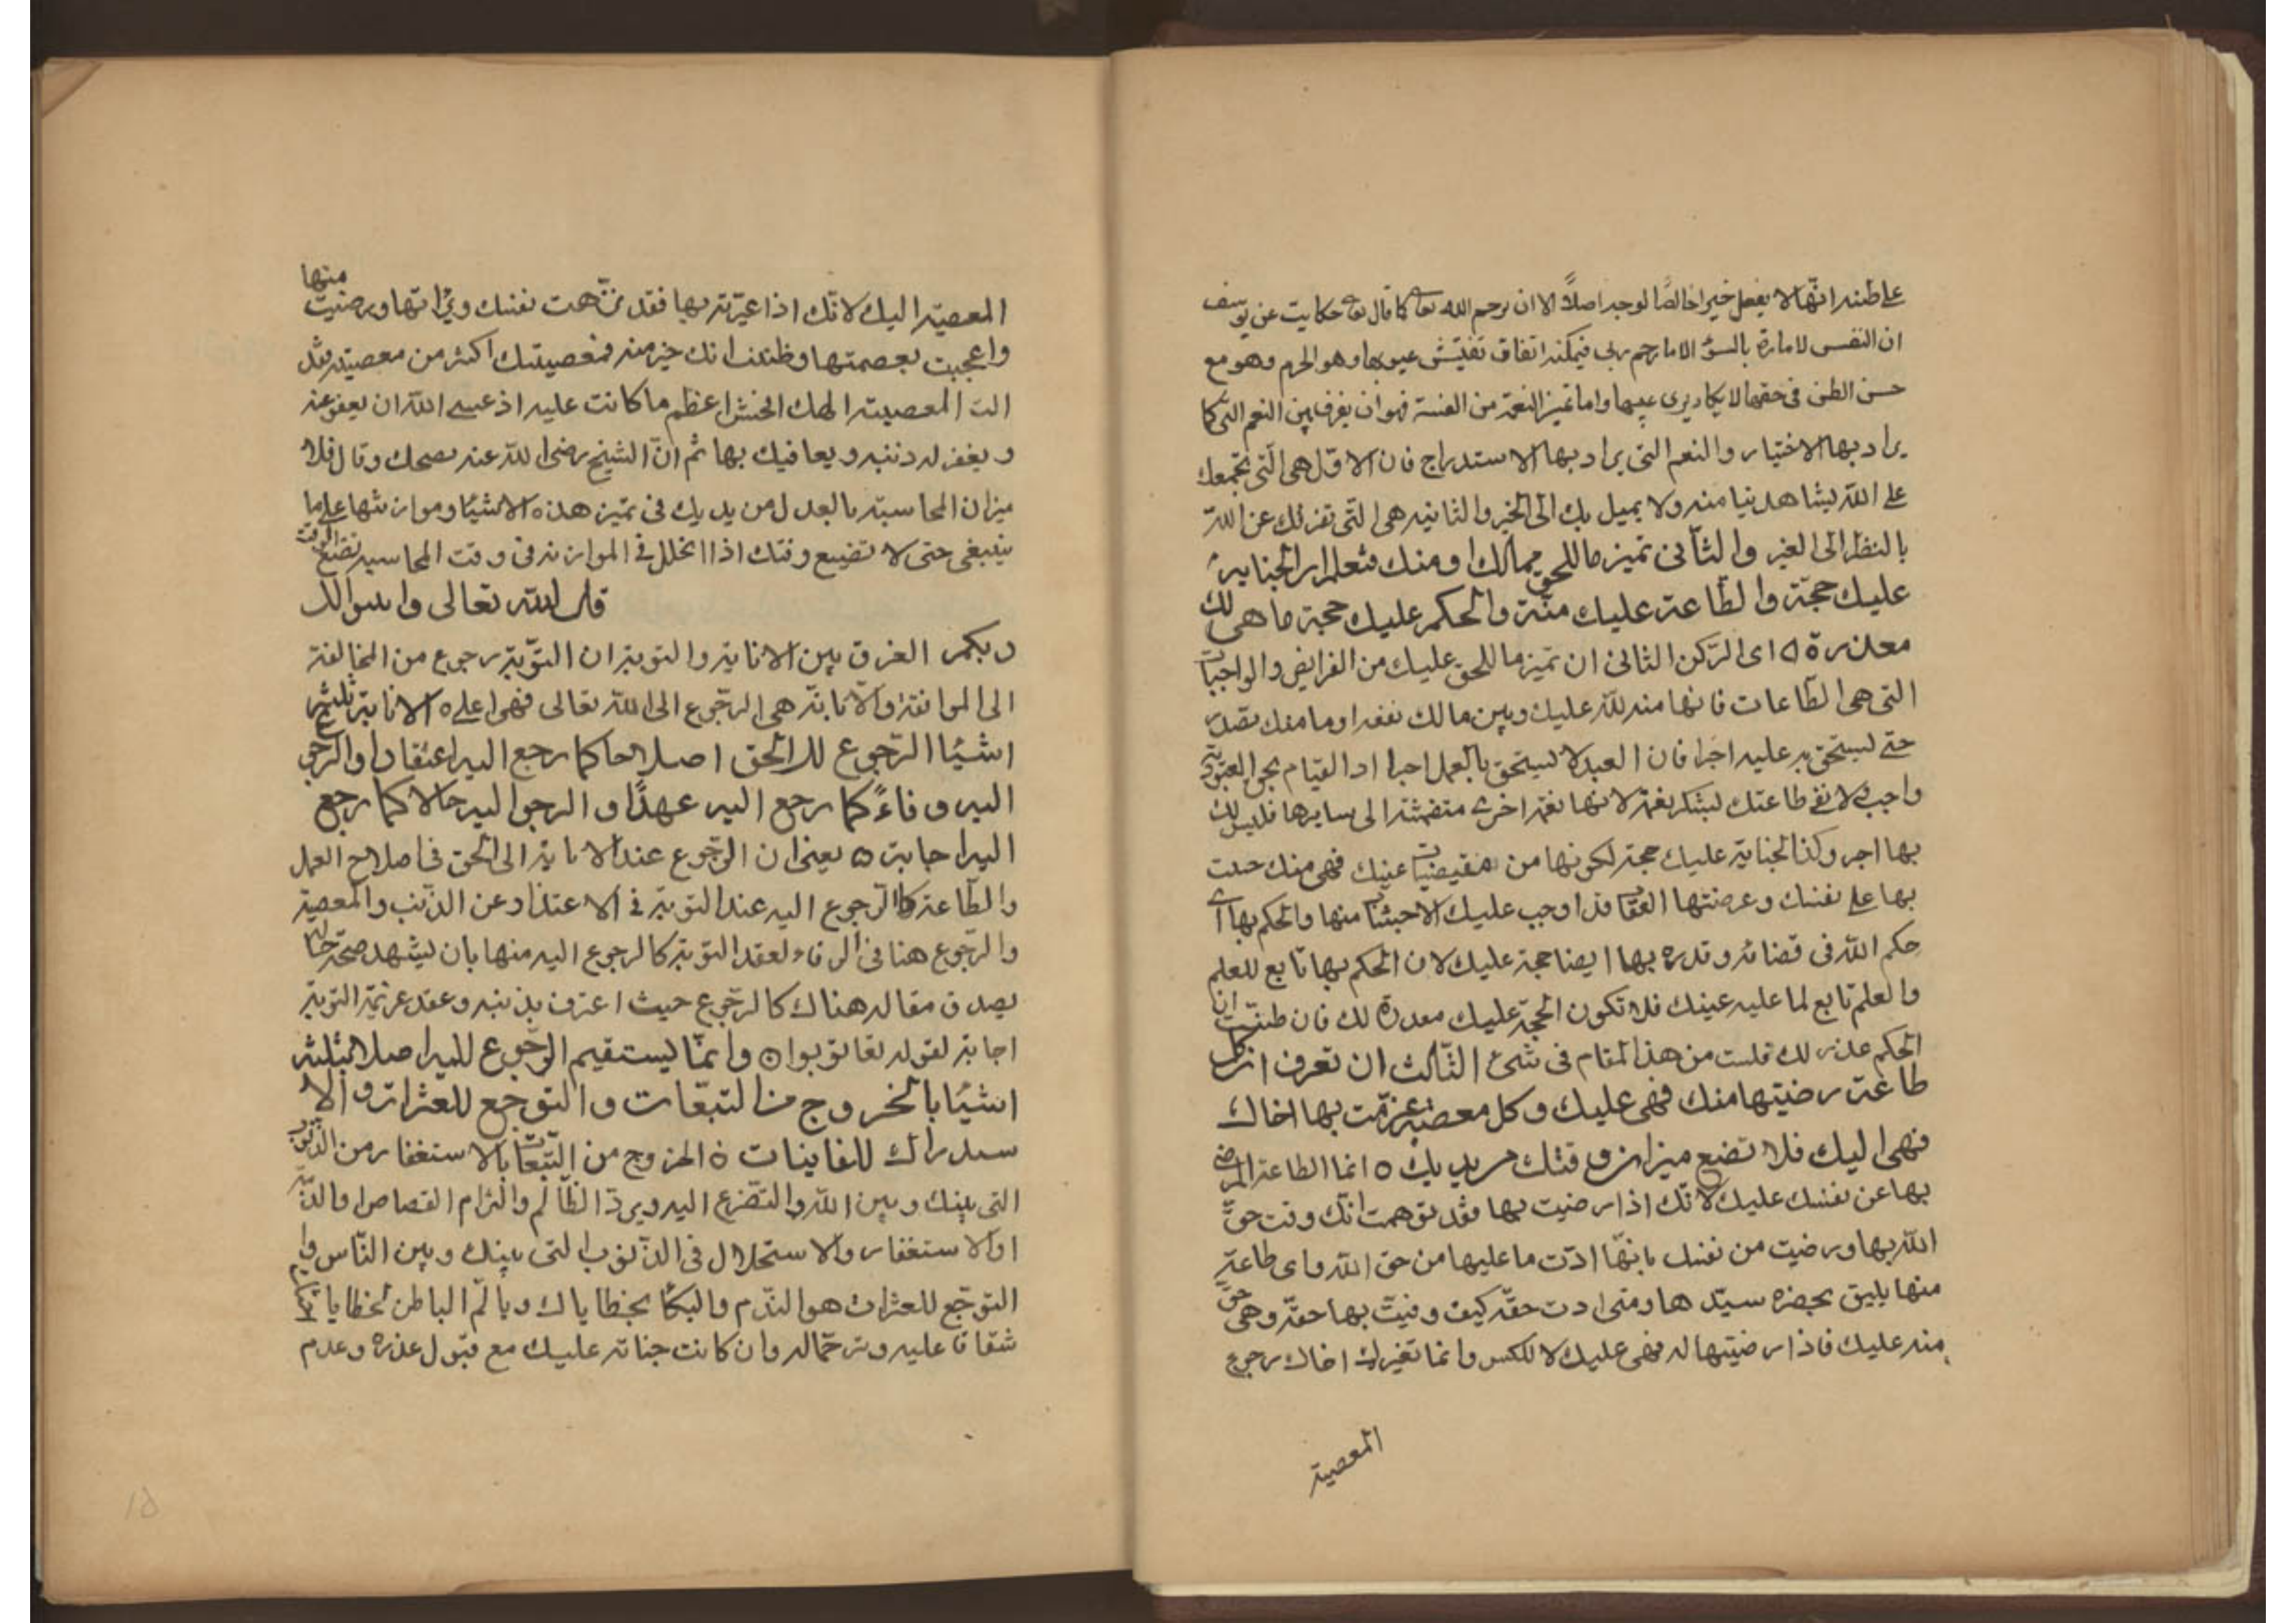 على ظنه انها لا يفعل خيرا خالصًا لوجه اصلاً الا ان يرحم الله تعا كما قال تعا حكايت عن يوسف
ان النفس لامارة بالسوء الا ما رحم ربى فيمكنه اتفاق تفتيش عيوبها وهو الحزم وهو مع
حسن الظن فى حقها لا يكاد يرى عيبها واما تميز النعمة من الفتنة فهو ان يفرق بين النعم التى كا
يراد بها الاختيار والنعم التى يراد بها الاستدراج فان الاول هى التى تجمعك
على الله ليشاهد نيا منه ولا يميل بك الى الخير والثانيه هى التى تفرقك عن الله
بالنظر الى الغير والثانى تميز ما للحق مما لك او منك فتعلم ان الجناية
عليك حجة والطاعة عليك منة والحكم عليك حجة ما هى لك
معذرة ٥ اى الركن الثانى ان تميز ما للحق عليك من الفرايض والواجبات
التى هى الطاعات فانها منه لله عليك وبين ما لك نفعه او ما منك بقصد
حتى ليستحق به عليه اجرا فان العبد لا يستحق بالعمل اجرا اد القيام بحق العبودية
واجب لا تفى طاعتك لبشكر نعمة لانها نعمة اخرى منضمتة الى سايرها فليس لك
بها اجر وكذا الجناية عليك حجة لكونها من مقيضيات عينك فهى منك حيث
بها على نفسك وعرضتها العقاب فذا وجب عليك الاحبتنا منها والحكم بها اى
حكم الله فى قضائه وقدره بها ايضا حجة عليك لان الحكم بها تابع للعلم
والعلم تابع لما عليه عينك فلا تكون الحجة عليك معدرة لك فان ظننت ان
الحكم عذر لك فلست من هذا المقام فى شئ الثالث ان تعرف ان كل
طاعة رضيتها منك فهى عليك وكل معصية عيرت بها اخاك
فهى اليك فلا تضع ميزان وقتك من يديك ٥ انما الطاعة المرضى
بها عن نفسك عليك لانك اذا رضيت بها فقد توهمت انك وفت حق
الله بها ورضيت من نفسك بانها ادت ما عليها من حق الله واى طاعة
منها يليق بحضرة سيدها ومتى ادت حقه كيف وفيت بها حقه وهى حق
منه عليك فاذا رضيتها له فهى عليك لا للكس وانما تغيرك اخاك رجوع
المعصية
المعصية اليك لانك اذا عيرته بها فقد نزهت نفسك وبراتها ورضيت منها
واعجبت بعصمتها وظننت انك خير منه فمعصيتك اكثر من معصيته
المعصية اعظم ما كانت عليه اذ عسى الله ان يعفو عنه
ويغفر له دنبه ويعافيك بها ثم ان الشيخ رضى الله عنه نصحك وقال فلا
ميزان المحاسبة بالعدل من يديك فى تميز هذه الاشيا وموازنتها على ما
ينبغى حتى لا تضيع وقتك اذا انخلل فى الموازنه فى وقت المحاسبه تضيع الوقت
قال الله تعالى وانيبوا الى
ربكم الفرق بين الانابة والتوبة ان التوبة رجوع من المخالفة
الى الموافقة والانابة هى الرجوع الى الله تعالى فهى اعلى ٥ الانابة ثلثة
اشيا الرجوع للالحق اصلاحا كما رجع اليه اعتقادا والرجو
اليه وفاءً كما رجع اليه عهدًا و الرجو اليه حالا كما رجع
اليه اجابة ٥ يعنى ان الرجوع عند الانابة الى الحق فى اصلاح العمل
والطاعة كالرجوع اليه عند التوبة فى الاعتذار عن الذنب والمعصية
والرجوع هنا فى الوفاء لعقد التوبة كالرجوع اليه منها بان ليشهد صحة حاله
بصدق مقاله هناك كالرجوع حيث اعترف بذنبه وعقد عزيمة التوبة
اجابة لقوله تعا توبوا ٥ وانما يستقيم الرجوع لليه اصلا بثلثة
اشيا بالخروج من التبعات والتوجع للعثرات والا
ستدراك للفاينات ٥ الخروج من التبعات بالاستغفار من الذنوب
التى بينك وبين الله والتضرع اليه وبرد الظالم والتزام القصاص او الدية
او الاستغفار والاستحلال فى الذنوب التى بينك وبين الناس وا
التوجع للعثرات هو الندم والبكا بخطاياك وبالم الباطن لخطايا
شفاقا عليه وترحما له وان كانت جناته عليك مع قبول عذره وعدم